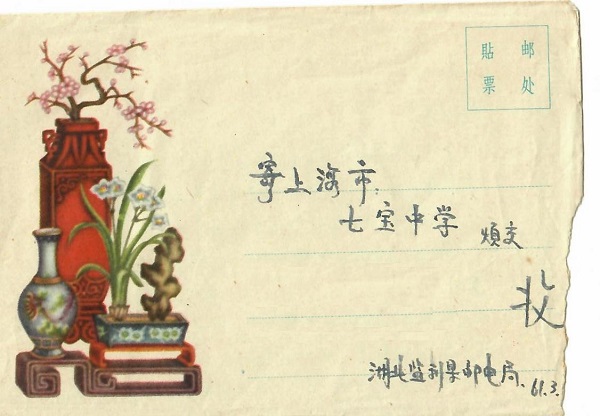 貼 邮
票 处
寄上海市
七宝中学 烦交
收
湖北监利县邮电局. 61.3.